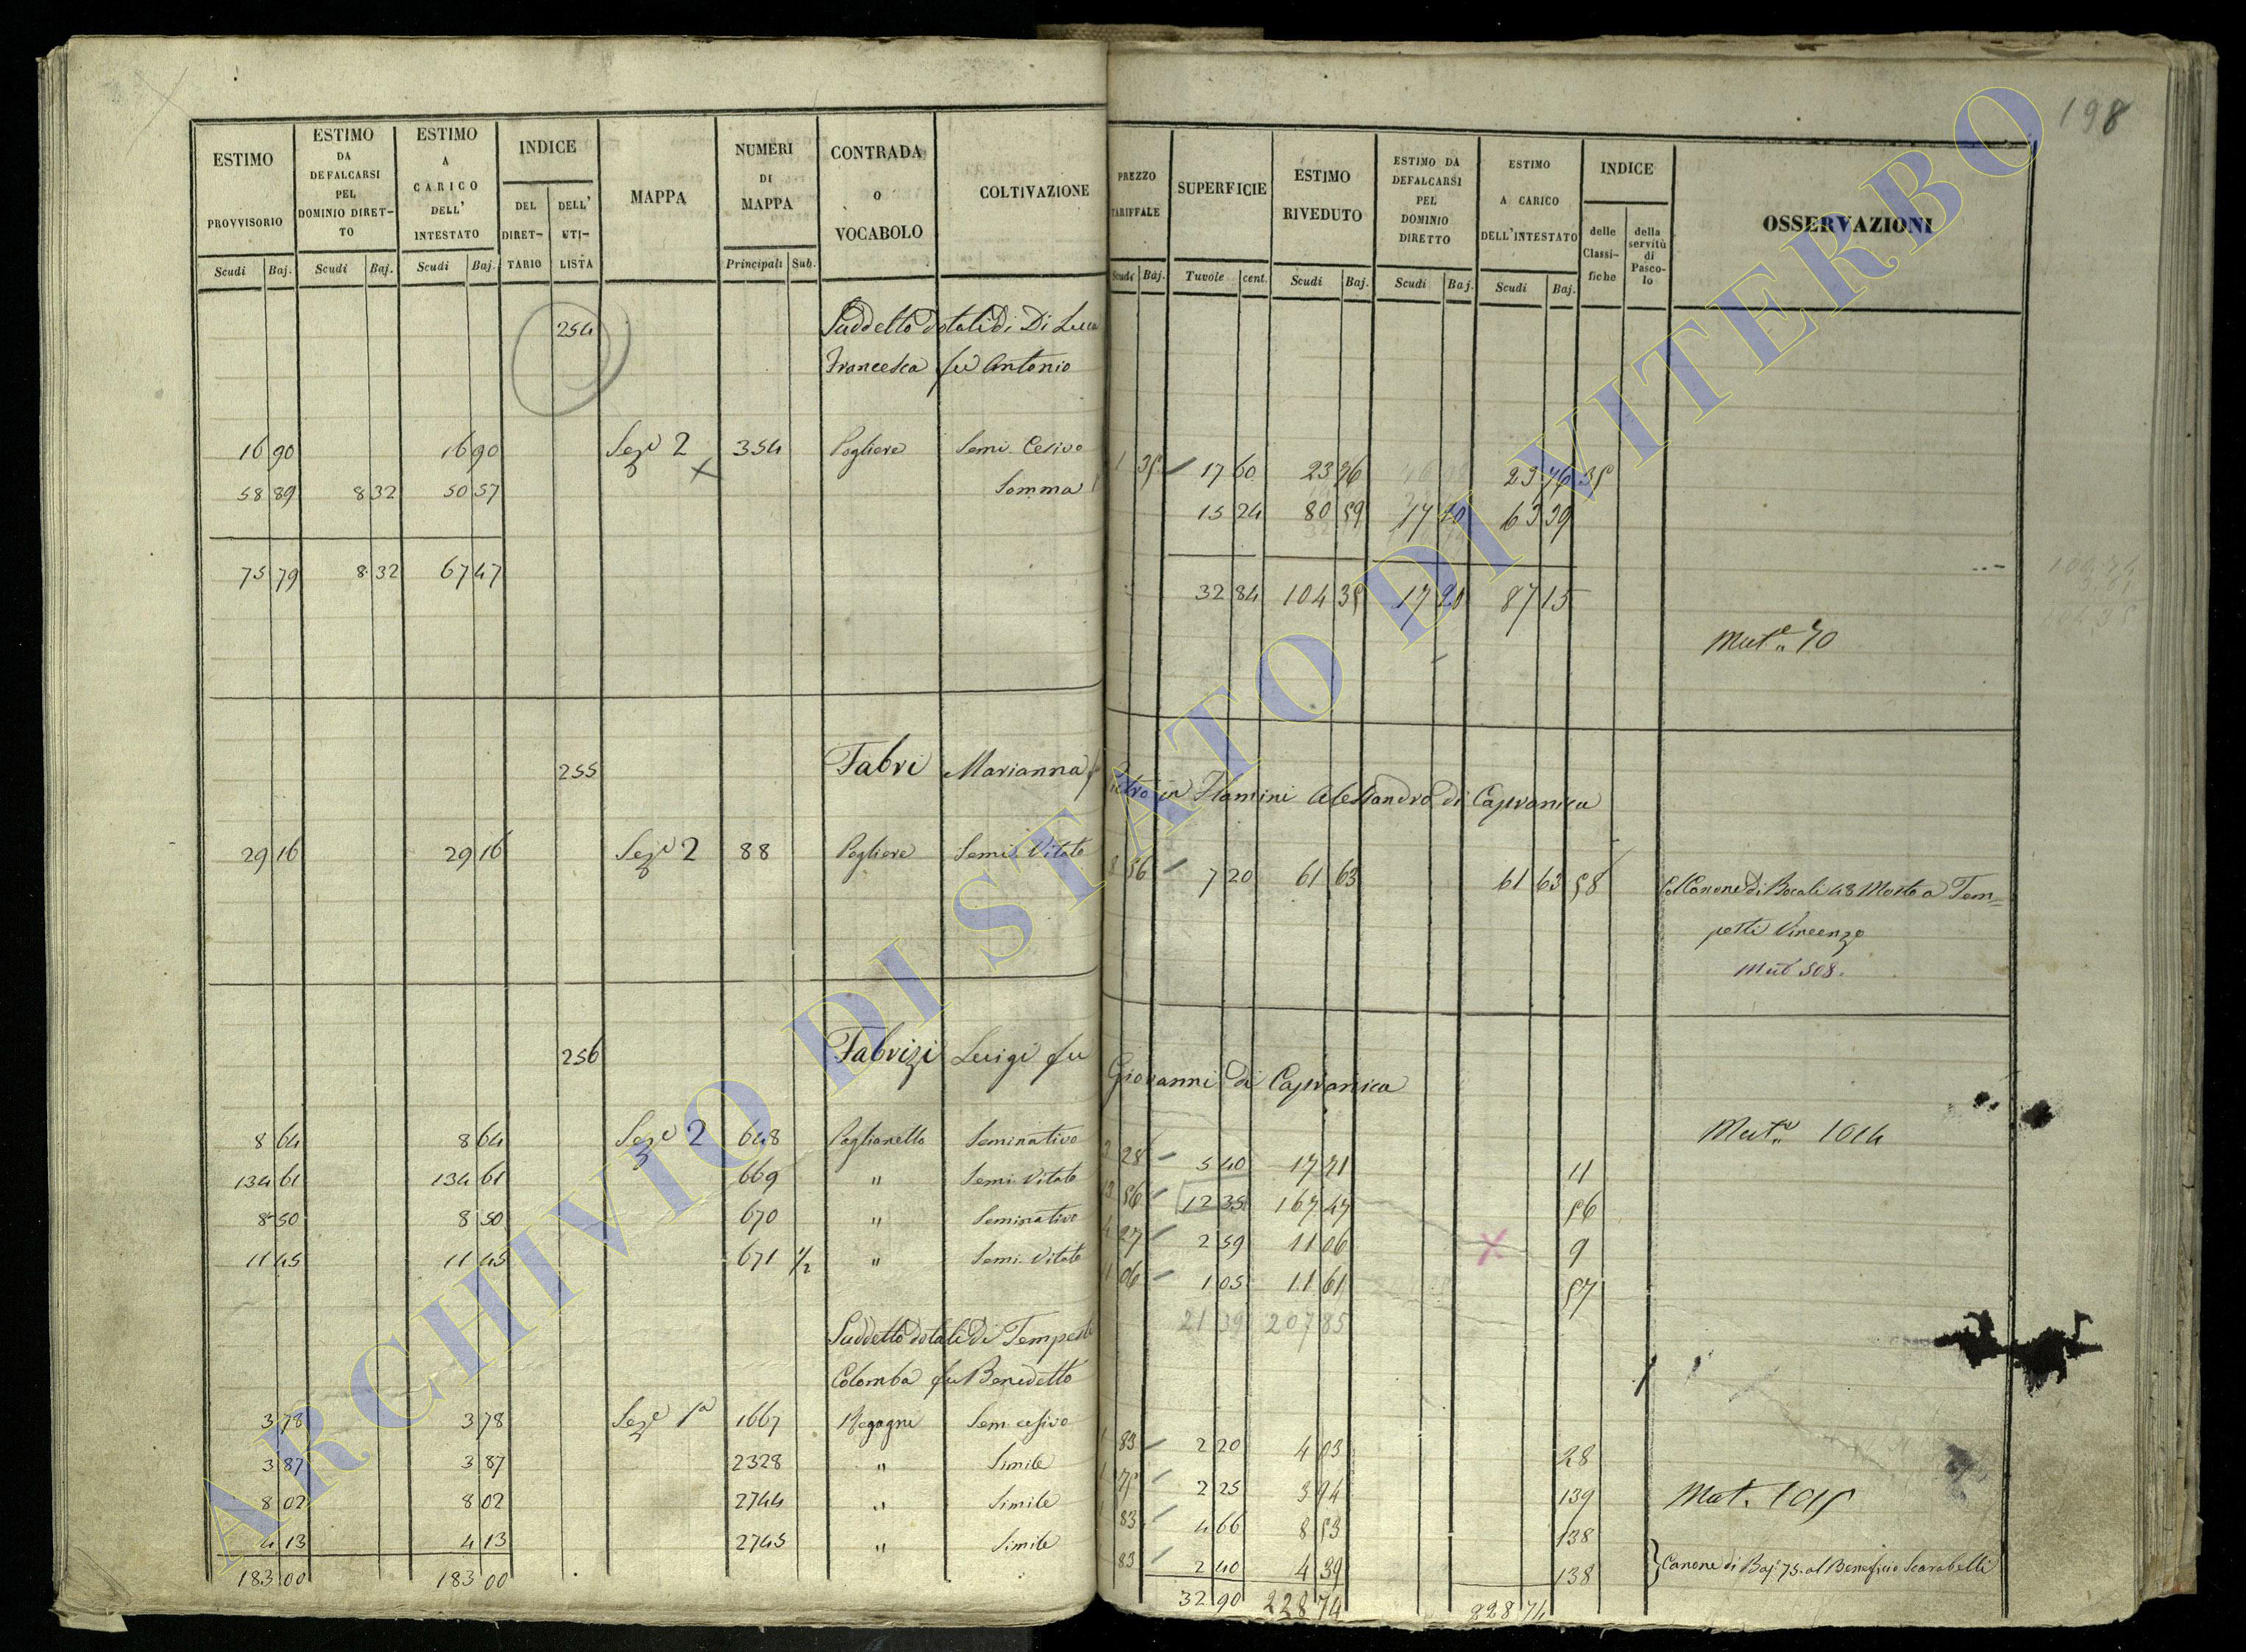 198
ESTIMO PROVVISORIO Scudi Baj.
ESTIMO DA DEFALCARSI PEL DOMINIO DIRET-TO Scudi Baj.
ESTIMO A CARICO DELL' INTESTATO Scudi Baj.
INDICE DEL DIRET-TARIO DELL' UTI-LISTA
MAPPA
NUMERI DI MAPPA Principali Sub.
CONTRADA O VOCABOLO
COLTIVAZIONE
PREZZO TARIFFALE Scudi Baj.
SUPERFICIE Tavole cent.
ESTIMO RIVEDUTO Scudi Baj.
ESTIMO DA DEFALCARSI PEL DOMINIO DIRETTO Scudi Baj.
ESTIMO A CARICO DELL'INTESTATO Scudi Baj.
INDICE delle Classi-fiche della servitù di Pasco-lo
OSSERVAZIONI
254 Suddetto dotali di Di Luca
Francesca fu Antonio
16 90 16 90 Seze 2 354 Pogliere Semi. Cesivo 1 35 17 60 23 76 23 76 35
58 89 8 32 50 57 Somma 15 24 80 59 17 20 63 39
75 79 8 32 67 47 32 84 104 35 17 20 87 15
Mute. 70
255 Fabri Marianna fu Pietro in Flamini Alessandro di Capranica
29 16 29 16 Seze 2 88 Pogliere Semi. Vitato 8 56 7 20 61 63 61 63 58 Col Canone di Bocali 48 Mosto a Tem=
pesti Vincenzo
Mut 508.
256 Fabrizi Luigi fu Giovanni di Capranica
8 64 8 64 Seze 2 648 Poglianello Seminativo 3 28 5 40 17 71 11 Mute. 1014
134 61 134 61 669 " Semi. Vitato 13 56 12 35 167 47 56
8 50 8 50 670 " Seminativo 4 27 2 59 11 06 9
11 45 11 45 671 1/2 " Semi. Vitato 11 06 1 05 11 61 57
21 39 207 85
Suddetto dotali di Tempesti
Colomba fu Benedetto
3 78 3 78 Seze 1a 1667 Sem. cesivo 1 83 2 20 4 03 28
3 87 3 87 2328 " Simile 1 75 2 25 3 94 139 Mut. 1015
8 02 8 02 2744 " Simile 1 83 4 66 8 53 138
4 13 4 13 2745 " Simile 1 83 2 40 4 39 138 Canone di Baj. 75. al Beneficio Scarabelli
183 00 183 00 32 90 228 74 228 74
ARCHIVIO DI STATO DI VITERBO